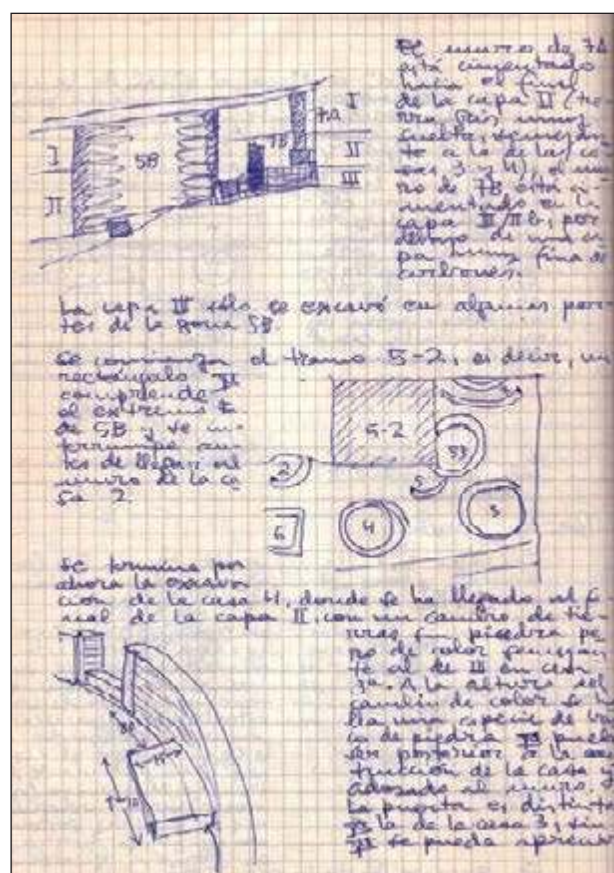 El muro de 7A
está cimentado
hacia el final
de la capa II (tie
rra gris muy
suelta, semejan
te a la de las ca
sas 3 y 4), el mu
ro de 7B está ci
mentado en la
capa III/IIb, por
debajo de una ca
pa muy fina de
carbones.
I
II
5B
7B
7A
I
II
III
La capa III sólo se excavó en algunas par
tes de la zona 5B.
Se comienza el tramo 5-2, es decir, un
rectángulo que
comprende
el extremo
de 5B y se in
terrumpe an
tes de llegar al
muro de la ca
sa 2.
5-2
2
5
53
6
4
3
Se termina por
ahora la excava
ción de la casa 4, donde se ha llegado al fi
nal de la capa II, con un cambio de tie
rras sin piedra pe
ro de color semejan
te al de III en
A la altura del
cambio de color se ha
lla una especie de
de piedra que puede
ser posterior a la cons
trucción de la casa
adosado al muro.
La puerta es distinta
a la de la casa 3, sin
que se pueda apreciar